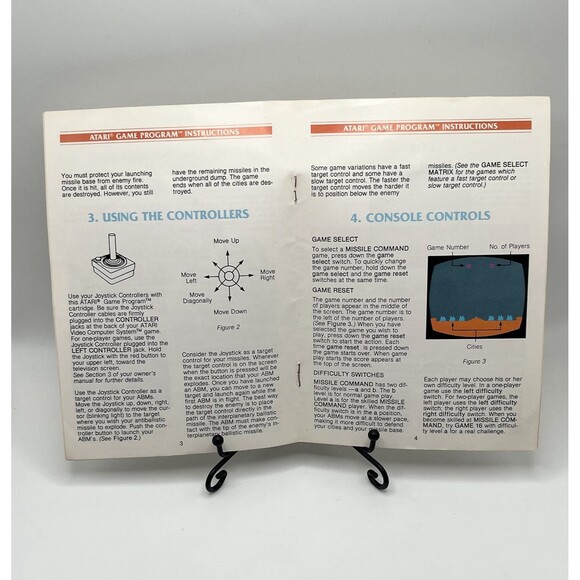 ATARI® GAME PROGRAM™ INSTRUCTIONS
You must protect your launching
missile base from enemy fire.
Once it is hit, all of its contents
are destroyed. However, you still
have the remaining missiles in the
underground dump. The game
ends when all of the cities are des-
troyed.
3. USING THE CONTROLLERS
Move Up
Move
Left
Move
Right
Move
Diagonally
Move Down
Figure 2
Use your Joystick Controllers with
this ATARI® Game Program™
cartridge. Be sure the Joystick
Controller cables are firmly
plugged into the CONTROLLER
jacks at the back of your ATARI
Video Computer System™ game.
For one-player games, use the
Joystick Controller plugged into the
LEFT CONTROLLER jack. Hold
the Joystick with the red button to
your upper left, toward the
television screen.
See Section 3 of your owner's
manual for further details.
Use the Joystick Controller as a
target control for your ABMs.
Move the Joystick up, down, right,
left, or diagonally to move the cur-
sor (blinking light) to the target
where you wish your antiballistic
missile to explode. Push the con-
troller button to launch your
ABM's. (See Figure 2.)
Consider the Joystick as a target
control for your missiles. Wherever
the target control is on the screen
when the button is pressed will be
the exact location that your ABM
explodes. Once you have launched
an ABM, you can move to a new
target and launch again while the
first ABM is in flight. The best way
to destroy the enemy is to place
the target control directly in the
path of the interplanetary ballistic
missile. The ABM must make con-
tact with the tip of the enemy's in-
terplanetary ballistic missile.
3
ATARI® GAME PROGRAM™ INSTRUCTIONS
Some game variations have a fast
target control and some have a
slow target control. The faster the
target control moves the harder it
is to position below the enemy
missiles. (See the GAME SELECT
MATRIX for the games which
feature a fast target control or
slow target control.)
4. CONSOLE CONTROLS
GAME SELECT
To select a MISSILE COMMAND
game, press down the game
select switch. To quickly change
the game number, hold down the
game select and the game reset
switches at the same time.
GAME RESET
The game number and the number
of players appear in the middle of
the screen. The game number is to
the left of the number of players.
(See Figure 3.) When you have
selected the game you wish to
play, press down the game reset
switch to start the action. Each
time game reset is pressed down
the game starts over. When game
play starts the score appears at
the top of the screen.
DIFFICULTY SWITCHES
MISSILE COMMAND has two dif-
ficulty levels—a and b. The b
level is for normal game play.
Level a is for the skilled MISSILE
COMMAND player. When the dif-
ficulty switch is in the a position,
your ABMs move at a slower speed
making it more difficult to defend
your cities and your missile base.
Game Number
No. of Players
Cities
Figure 3
Each player may choose his or her
own difficulty level. In a one-player
game use the left difficulty
switch. For two-player games, the
left player uses the left difficulty
switch; the right player uses the
right difficulty switch. When you
become skilled at MISSILE COM-
MAND, try GAME 16 with difficul-
ty level a for a real challenge.
4